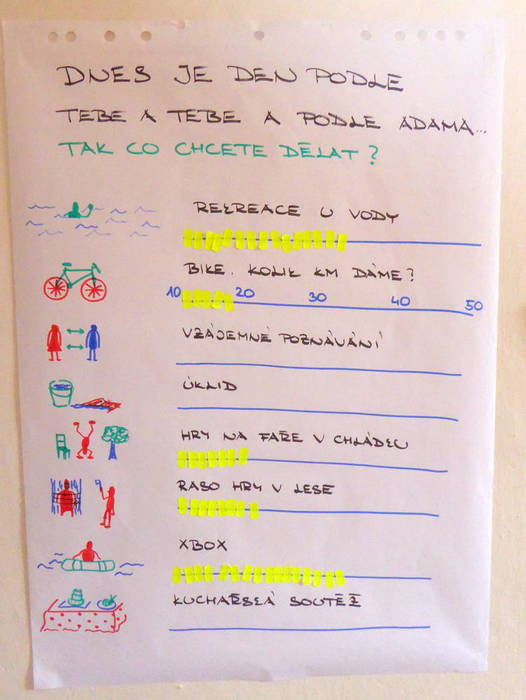 DNES JE DEN PODLE
TEBE A TEBE A PODLE ADAMA...
TAK CO CHCETE DĚLAT?
REKREACE U VODY
BIKE. KOLIK KM DÁME?
10 20 30 40 50
VZÁJEMNÉ POZNÁVÁNÍ
ÚKLID
HRY NA FAŘE V CHLÁDKU
RABO HRY V LESE
XBOX
KUCHAŘSKÁ SOUTĚŽ